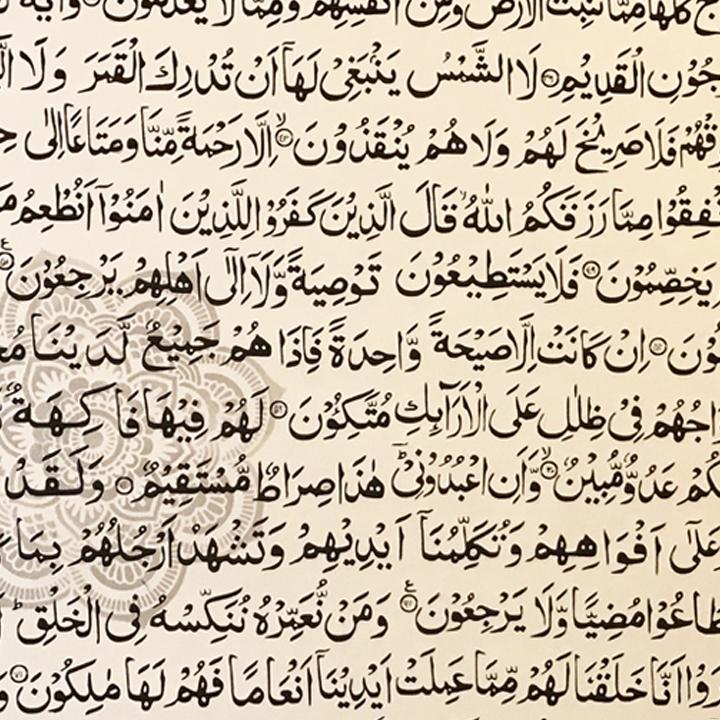 كلها مما تنبت الارض ومن انفسهم ومما لا يعلمون
جون القديم لا الشمس ينبغي لها ان تدرك القمر ولا
فلا صريخ لهم ولا هم ينقذون الا رحمة منا ومتاعا الى
نفقوا مما رزقكم الله قال الذين كفروا للذين امنوا انطعم
يخصمون فلا يستطيعون توصية ولا الى اهلهم يرجعون
ون ان كانت الا صيحة واحدة فاذا هم جميع لدينا
اجهم في ظلل على الارائك متكون لهم فيها فاكهة
كم عدو مبين وان اعبدوني هذا صراط مستقيم ولقد
على افواههم وتكلمنا ايديهم وتشهد ارجلهم بما
طاعوا مضيا ولا يرجعون ومن نعمره ننكسه في الخلق
روا انا خلقنا لهم مما عملت ايدينا انعاما فهم لها ملكون